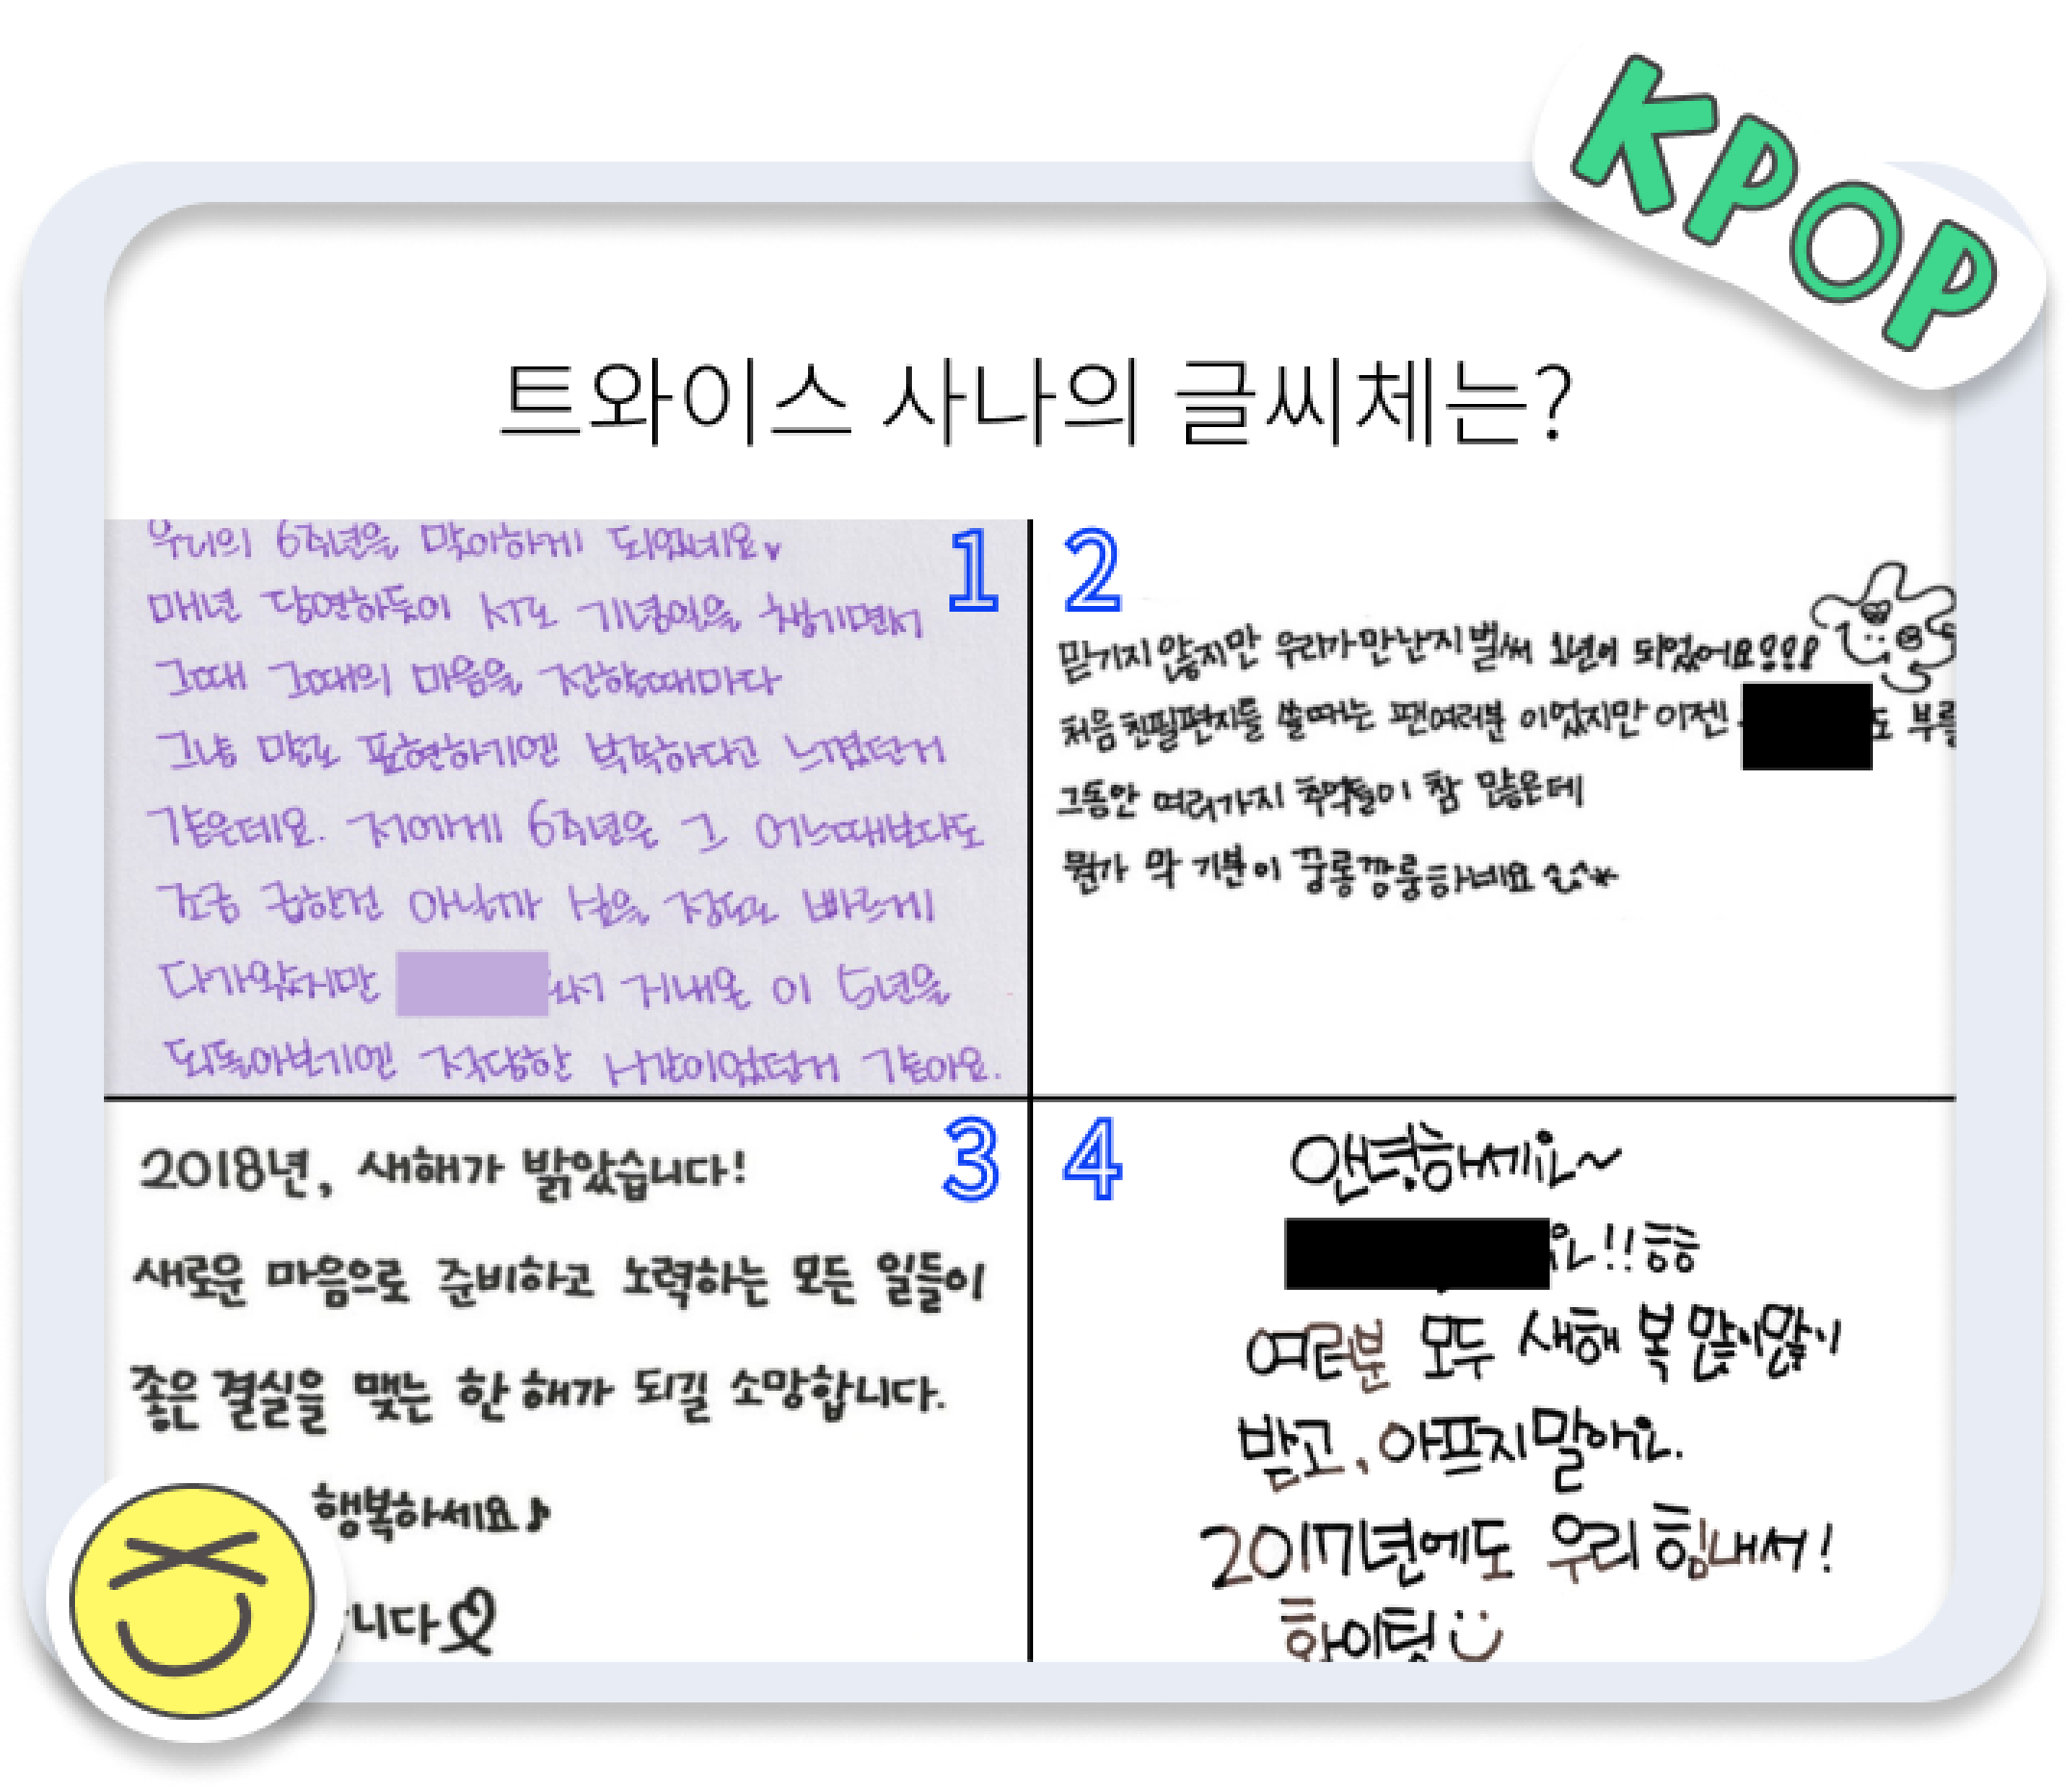 KPOP
트와이스 사나의 글씨체는?
1
우리의 6주년을 맞이하게 되었네요
매년 당연하듯이 서로 기념일을 챙기면서
그때 그때의 마음을 전할때마다
그냥 말로 표현하기엔 부족하다고 느꼈던거
같은데요. 저에게 6주년은 그 어느때보다도
조금 급한건 아닐까 싶을 정도로 빠르게
다가왔지만 서 지내온 이 5년을
되돌아보기엔 적당한 시간이었던거 같아요.
2
믿기지 않지만 우리가 만난지 벌써 1년이 되었어요!!!
처음 친필편지를 쓸때는 팬여러분 이었지만 이젠 도 부를
그동안 여러가지 추억들이 참 많은데
뭔가 막 기분이 꾸롱깡룽하네요
3
2018년, 새해가 밝았습니다!
새로운 마음으로 준비하고 노력하는 모든 일들이
좋은 결실을 맺는 한 해가 되길 소망합니다.
행복하세요♪
니다♡
4
안녕하세요~
요!! ㅎㅎ
여러분 모두 새해 복 많이많이
받고, 아프지말아요.
2017년에도 우리 힘내서!
화이팅